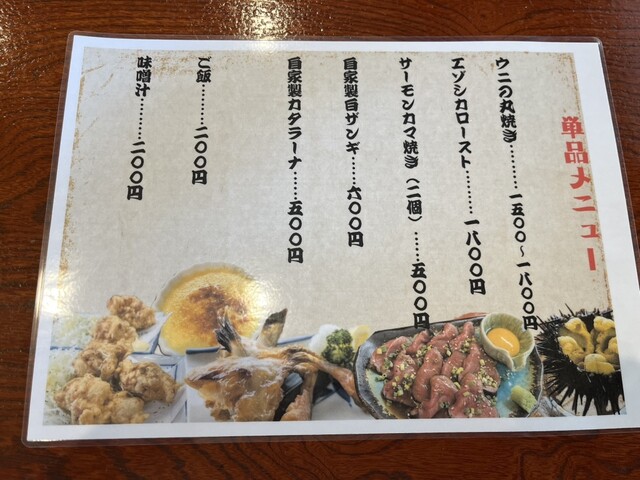 単品メニュー
ウニの丸焼き………一五〇〇～一八〇〇円
エゾシカロースト………一八〇〇円
サーモンカマ焼き（二個）……五〇〇円
自家製白ザンギ……六〇〇円
自家製カタラーナ……五〇〇円
ご飯………二〇〇円
味噌汁………二〇〇円